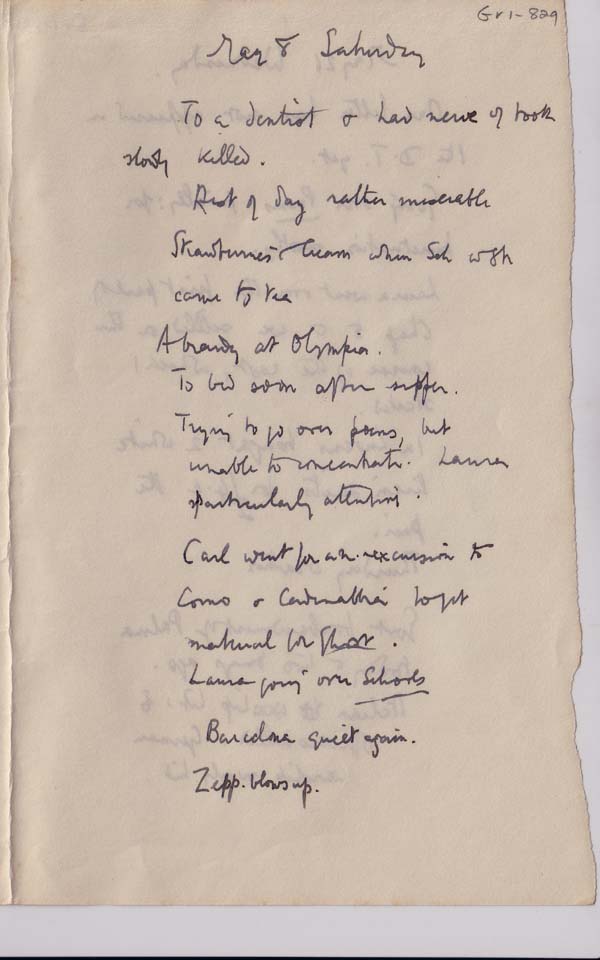 Gr1-829
May 8 Saturday
To a dentist & had nerve of tooth
slowly killed.
Rest of day rather miserable
Strawberries & Cream when
came to tea
A brandy at Olympia.
To bed soon after supper.
Trying to go over poems, but
unable to concentrate. Laura
particularly attentive.
Carl went for a.n. excursion to
Como & Cadenabbia to get
material for Ghost.
Laura going over Schools
Barcelona quiet again.
Zepp. blows up.